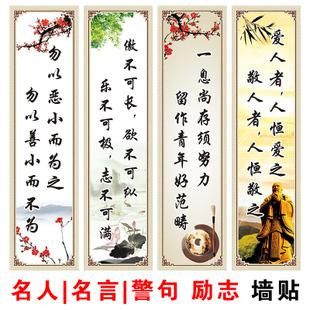 勿以恶小而为之
勿以善小而不为
傲不可长，欲不可纵
乐不可极，志不可满
一息尚存须努力
留作青年好范畴
爱人者，人恒爱之
敬人者，人恒敬之
名人|名言|警句 励志 墙贴